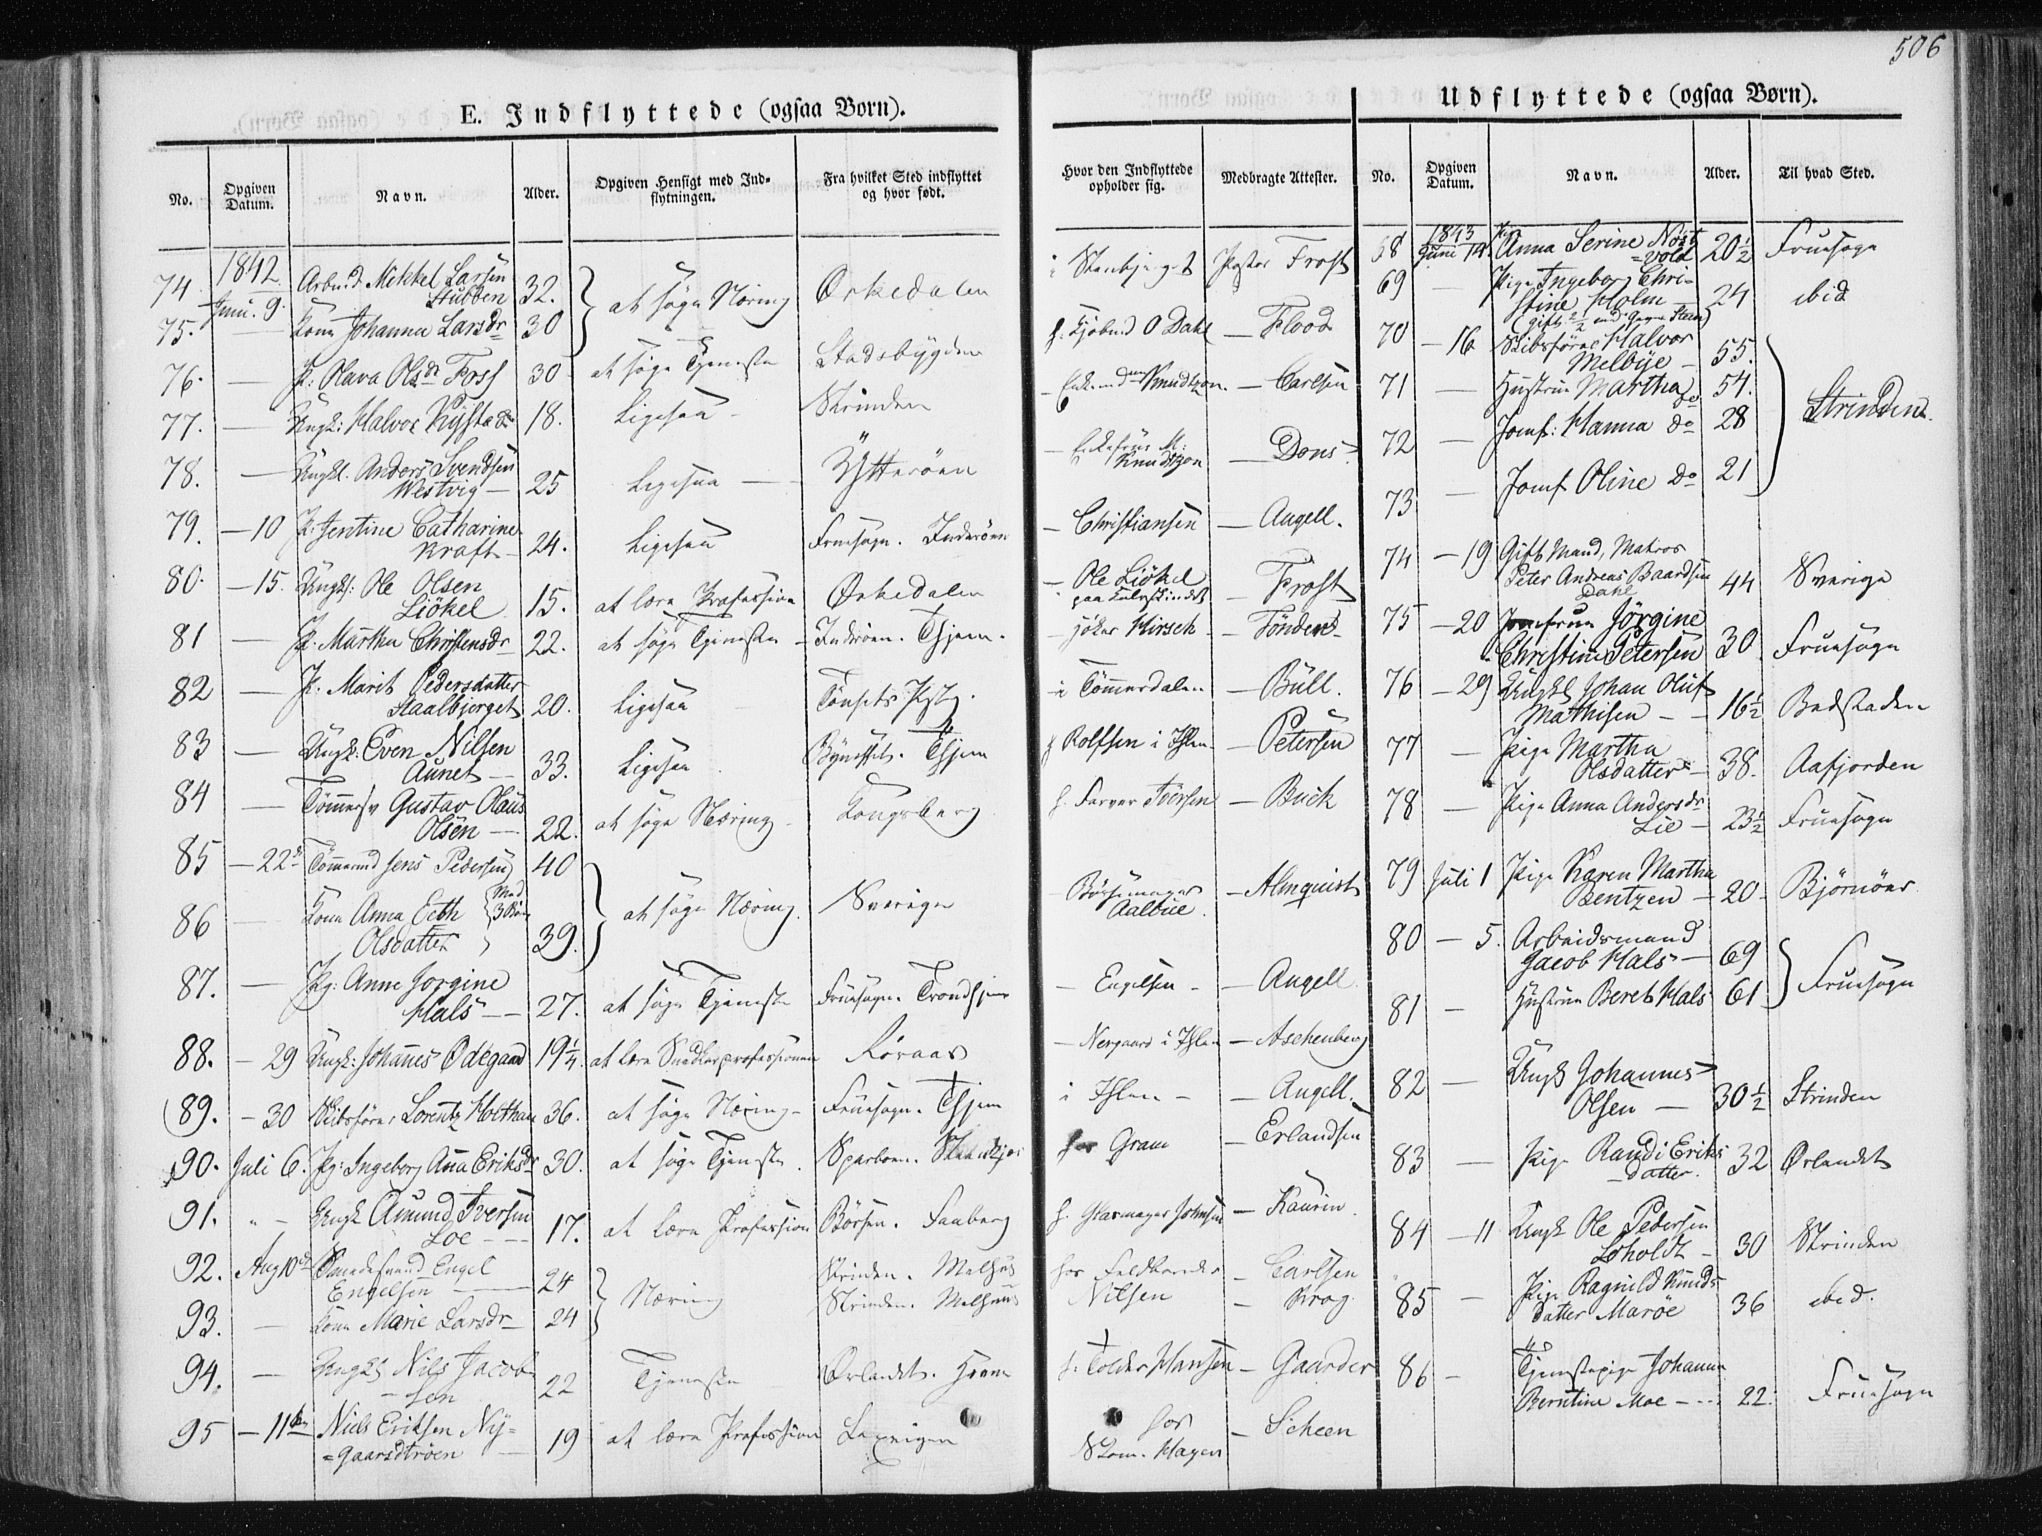 506
E. Indflyttede (ogsaa Børn).
No.
Opgiven Datum.
Navn.
Alder.
Opgiven Hensigt med Indflytningen.
Fra hvilket Sted indflyttet og hvor født.
Hvor den Indflyttede opholder sig.
Medbragte Attester.
1842
74. Juni. 9. Arbmd Mikkel Larsen Stubben 32. at søge Næring Ørkedalen Pastor Frost
75. — Kone Johanna Larsdr 30
76. — P: Olava Olsdr Foss 30 at søge Tjeneste Stadsbygden Kjøbmd O Dahl — Flood
77. — Ungk: Halvor 18. Ligesaa Strinden Knudtzon — Carlsen
78. — Ungk. Anders Svendsen Westvig — 25 Ligesaa Ytterøen — Enkefrue M: Knudtzon — Dons
79. — 10 P: Jentine Catharine Kraft — 24. Ligesaa Fruesogn. Inderøen — Christiansen — Angell.
80. — 15. Ungk: Ole Olsen Liökel 15. at lære Profession Ørkedalen — Ole Liökel — Frost
81 — P. Martha Christensdr 22. at søge Tjeneste — Inderøen. Thjem. — Hirsch — Tönder
82 — P. Marit Pedersdatter Staalbjerget 20. Ligesaa Tönsets — i Tömmerdalen — Büll.
83 — Ungk: Even Nilsen Aunet — 33. Ligesaa Bynesset. Thjem Rolfsen i Ihlen — Petersen
84 — Tömmersv Gustav Olaus Olsen — 22. at søge Næring — Kongsberg h. Farver Iversen — Buck
85 — 22de Tömmermd Jens Pedersen 40 at søge Næring. Sverige — Aalbue. — Almquist
86 — Kone Anna Olsdatter Med 3 Børn 39.
87. — Pig: Anne Jorgine Hals — 27. at søge Tjeneste Fruesogn. Trondhjem — Engelsen — — Angell.
88. — 29 Ungk: Johannes Ödegaard 19¼. at lære Sadlerprofessionen Röraas — Nergaard i Ihlen — Aschenberg
89. — 30 Skibsförer Lorentz Holthau 36. at søge Næring — Fruesogn. Thjem i Ihlen — — Angell.
90. Juli 6. Pg: Ingeborg Ana Eriksdr 30. at søge Tjeneste. Sparboen. hos Gram — Erlandsen
91. " — Ungk Amund Iversen Loe — 17. at lære Profession Börsen. Faaberg h. Glarmager Johnsen — Kaurin.
92. Aug 10de Engel Engelsen — 24 Næring Strinden. Melhus hos — Carlsen
93. — Kone Marie Larsdr — 24 Strinden. Melhuus Nilsen — Krog
94. — Ungks Nils Jacobsen 22 Tjeneste Ørlandet. h: Tolder Hansen — Gaarder
95 — 11te Niels Eriksen Nygaardströen 19 at lære Profession hos Hagen — Scheen
Udflyttede (ogsaa Børn).
No.
Opgiven Datum.
Navn.
Alder.
Til hvad Sted.
1843
68 Juni 14. Pige Anna Serine Nöstvold 20½ Fruesogn
69 — Pige Ingeborg Christine Holm 24 ibid
70 — 16 Skibsförer Halvor Melbye — 55. Strinden.
71 — Hustrue Martha do 54.
72 — Jomf: Hanna do 28
73 — Jomf Oline do 21
74 — 19 Gift Mand, Matros Peter Andreas Baardsen Dahl 44 Sverige
75 — 20 Jomfrue Jörgine Christine Petersen 30 Fruesogn
76 — 29 Ungk Johan Oluf Mathisen — 16½ Badstaden
77 — Pige Martha Olsdatter — 38. Aafjorden
78 — Pige Anna Andersdr Lie — 23½ Fruesogn
79 Juli 1 Pige Karen Martha Bentzen — 20 Björnöer
80 — 5. Arbeidsmand Jacob Hals — 69 Fruesogn
81 — Hustrue Beret Hals 61
82 — Ungk Johannes Olsen — 30½ Strinden
83 — Pige Randi Eriksdatter. 32 Ørlandet
84 — 11 Ungk Ole Pedersen Loholdt — 30 Strinden
85 — Pige Ragnild Knudsdatter Maröe 36 ibid.
86 — Tjenestepige Johanna Berntine Moe — 22. Fruesogn